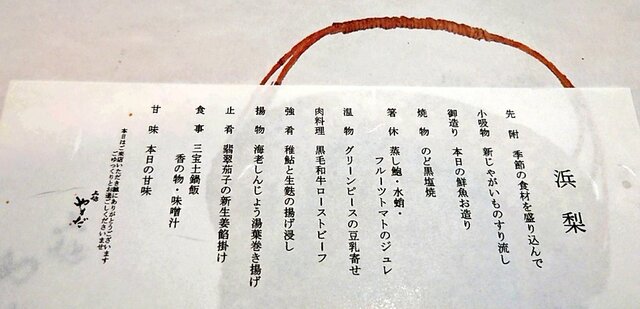 浜梨
先附 季節の食材を盛り込んで
小吸物 新じゃがいものすり流し
御造り 本日の鮮魚お造り
焼物 のど黒塩焼
箸休 蒸し鮑・水蛸・
フルーツトマトのジュレ
温物 グリーンピースの豆乳寄せ
肉料理 黒毛和牛ローストビーフ
強肴 稚鮎と生麩の揚げ浸し
揚物 海老しんじょう湯葉巻き揚げ
止肴 翡翠茄子の新生姜餡掛け
食事 三宝土鍋飯
香の物・味噌汁
甘味 本日の甘味
本日はご来店いただき誠にありがとうございます
ごゆっくりとお過ごしくださいませ
やまだ